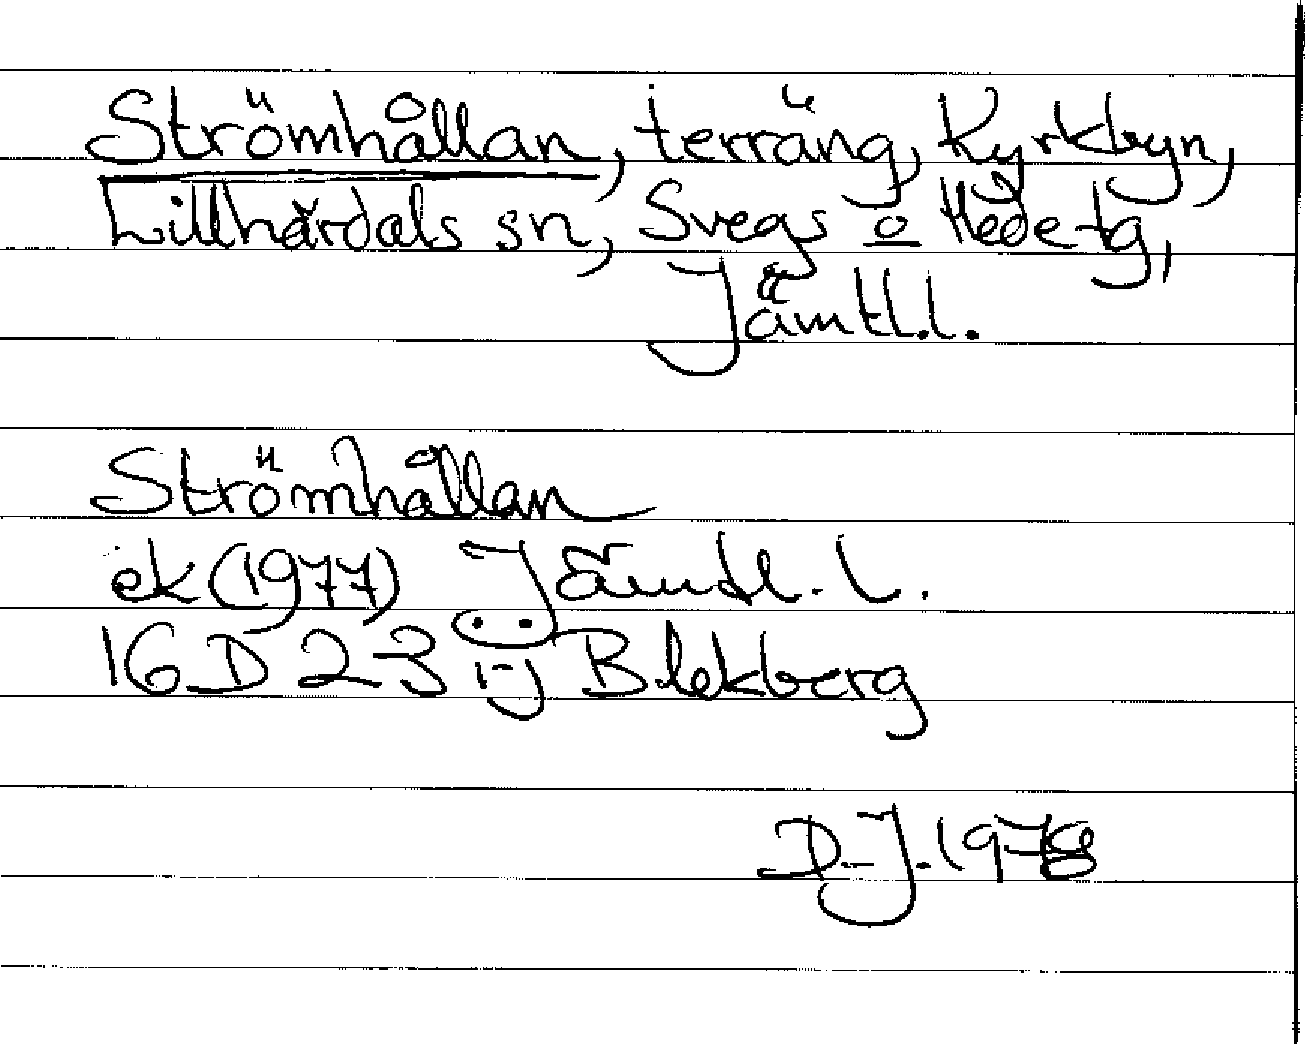 Strömhållan, terräng, Kyrkbyn,
Lillhärdals sn, Svegs o Hede tg,
Jämtl.l.
Strömhållan
ek (1977) Jämtl. L.
16 D 2-3 i-j Blekberg
D-J. 1978